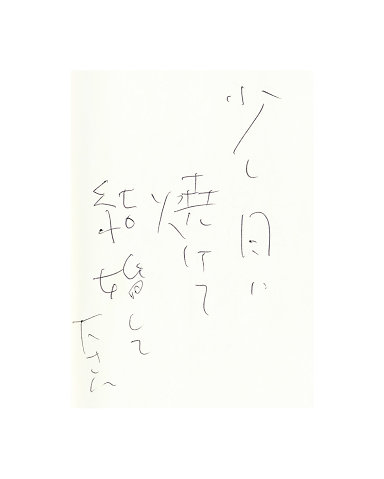 少し日に
焼けて
結婚して
下さい